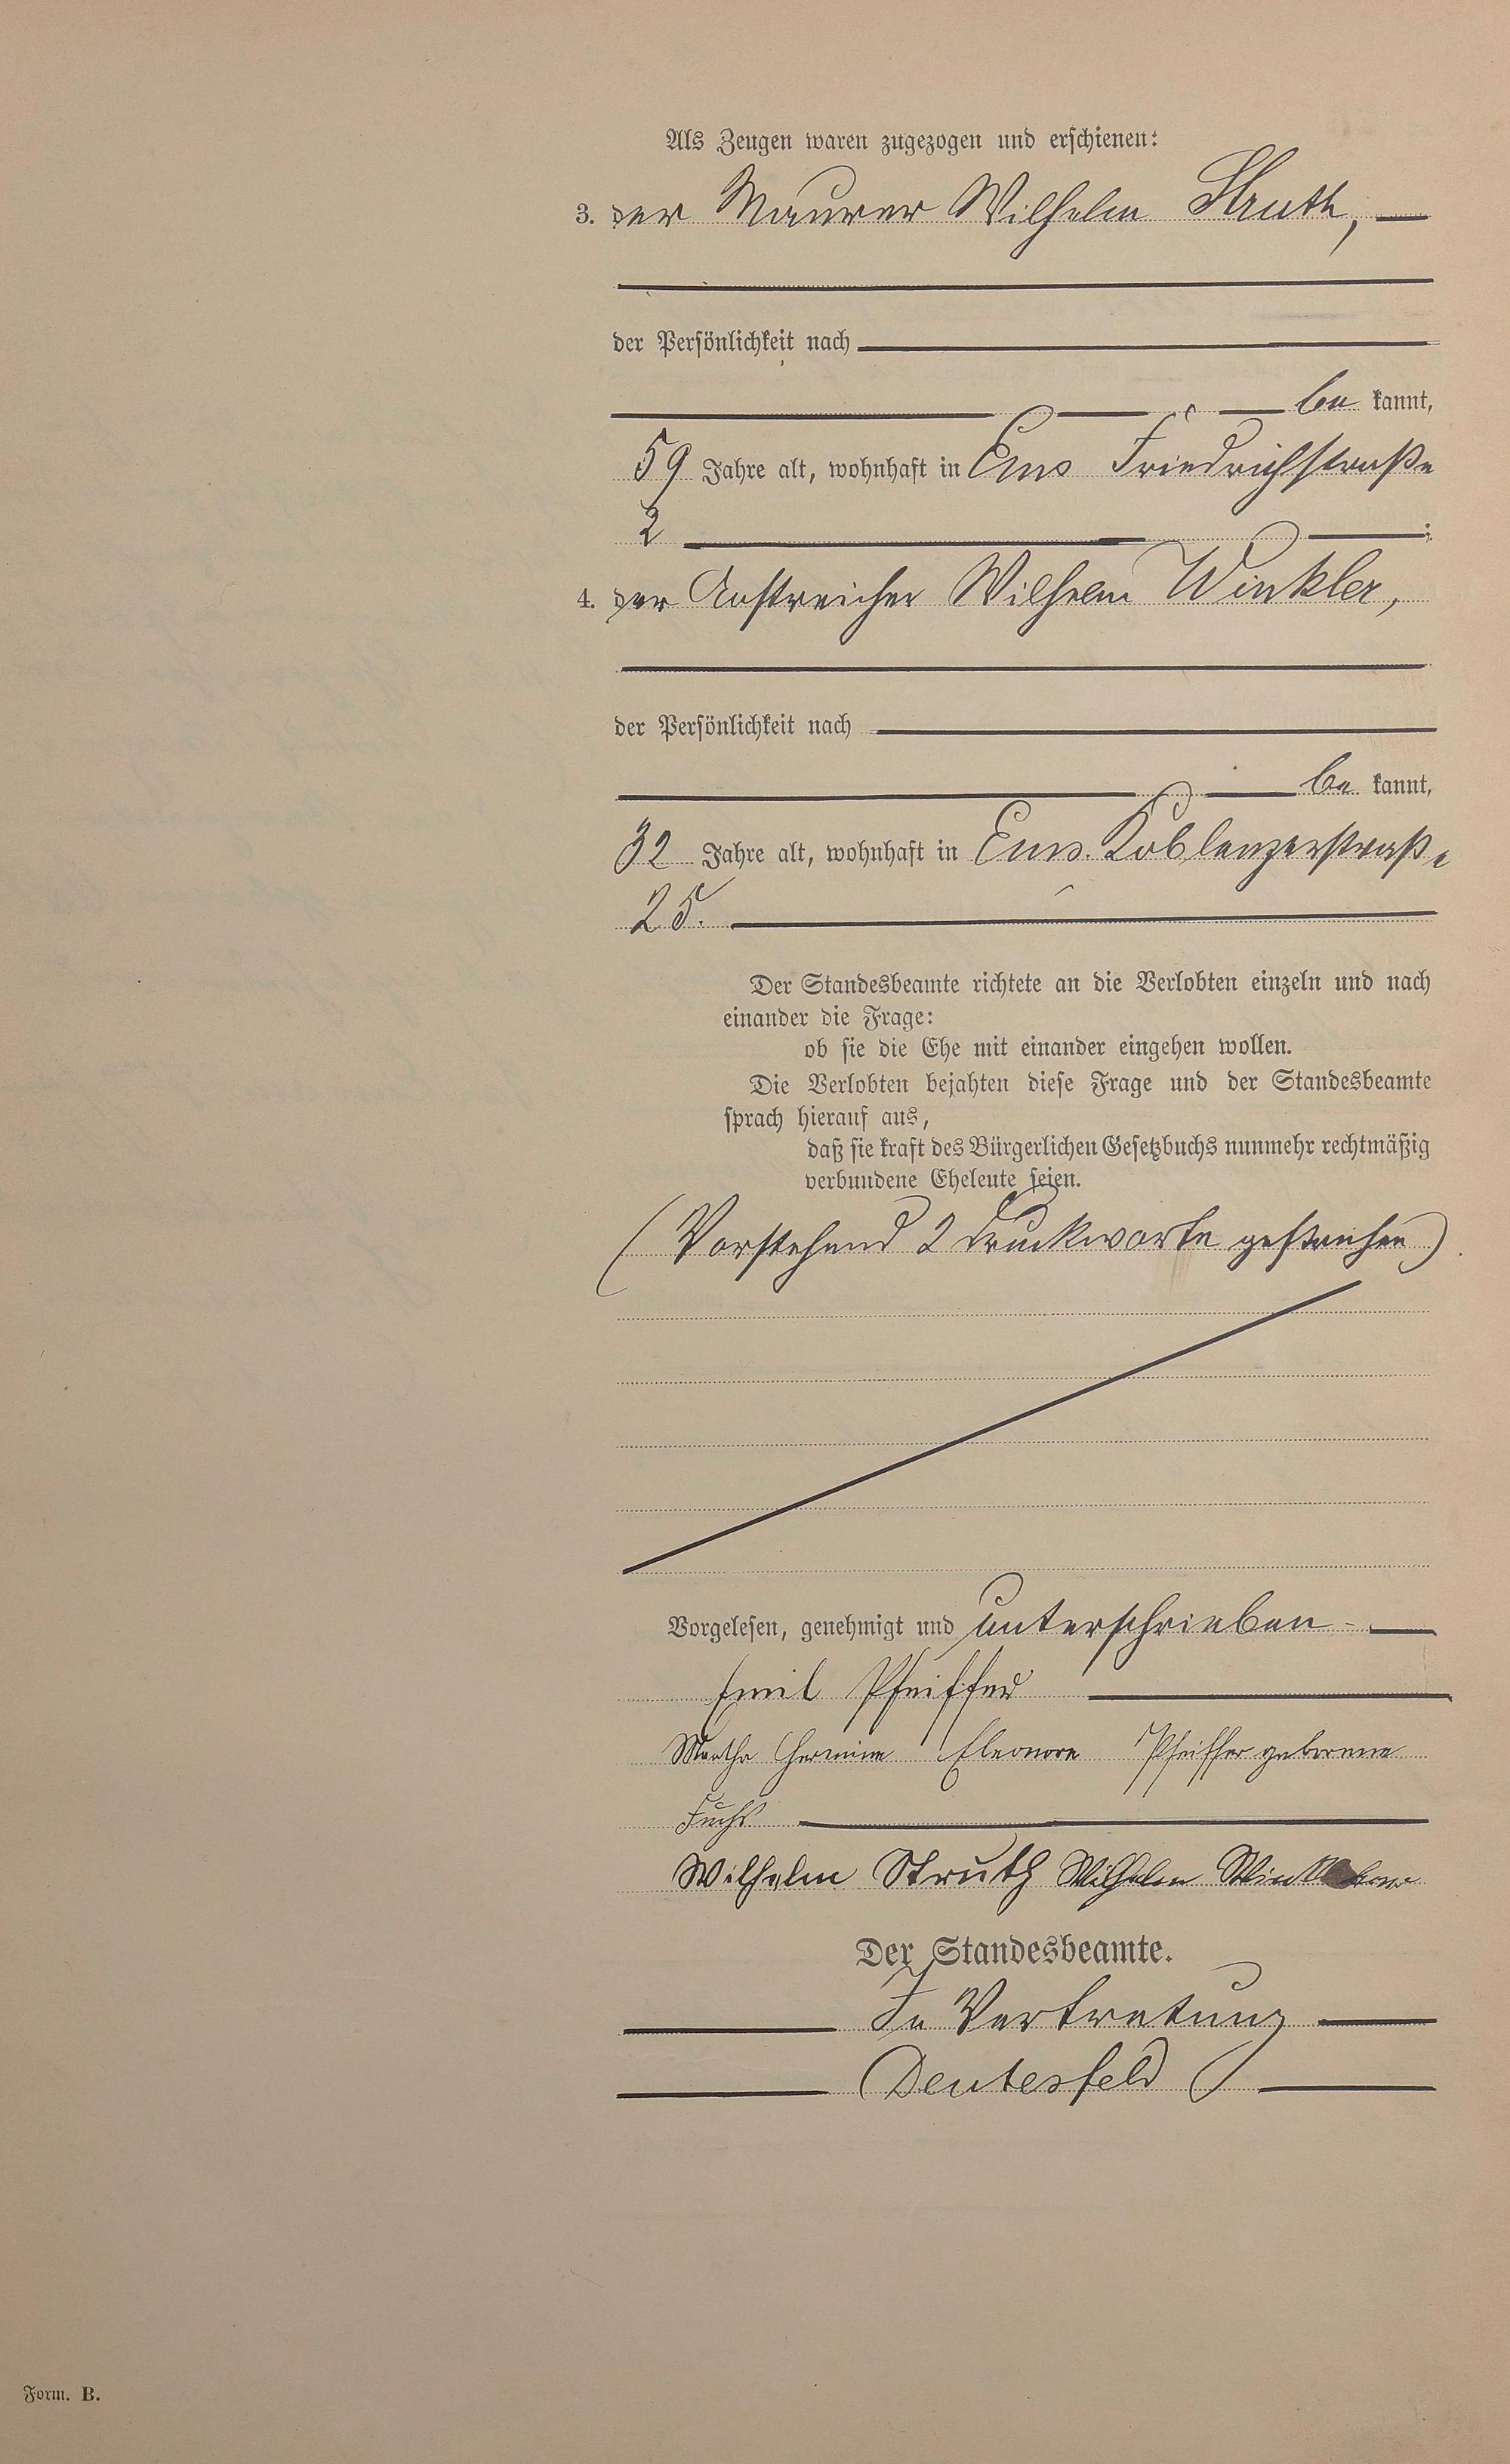 Als Zeugen waren zugezogen und erschienen:
3. der Maurer Wilhelm Struth,
der Persönlichkeit nach
be kannt,
59 Jahre alt, wohnhaft in Ems Friedrichstraße
2 ;
4. der Anstreicher Wilhelm Winkler,
der Persönlichkeit nach
be kannt,
32 Jahre alt, wohnhaft in Ems. Koblenzerstraße
25.
Der Standesbeamte richtete an die Verlobten einzeln und nach
einander die Frage:
ob sie die Ehe mit einander eingehen wollen.
Die Verlobten bejahten diese Frage und der Standesbeamte
sprach hierauf aus,
daß sie kraft des Bürgerlichen Gesetzbuchs nunmehr rechtmäßig
verbundene Eheleute seien.
(Vorstehend 2 Druckworte gestrichen)
Vorgelesen, genehmigt und unterschrieben
Emil Pfeiffer
Martha Hermine Eleonore Pfeiffer geborene
Fuchs
Wilhelm Struth Wilhelm Winkler
Der Standesbeamte.
In Vertretung
Deutesfeld
Form. B.